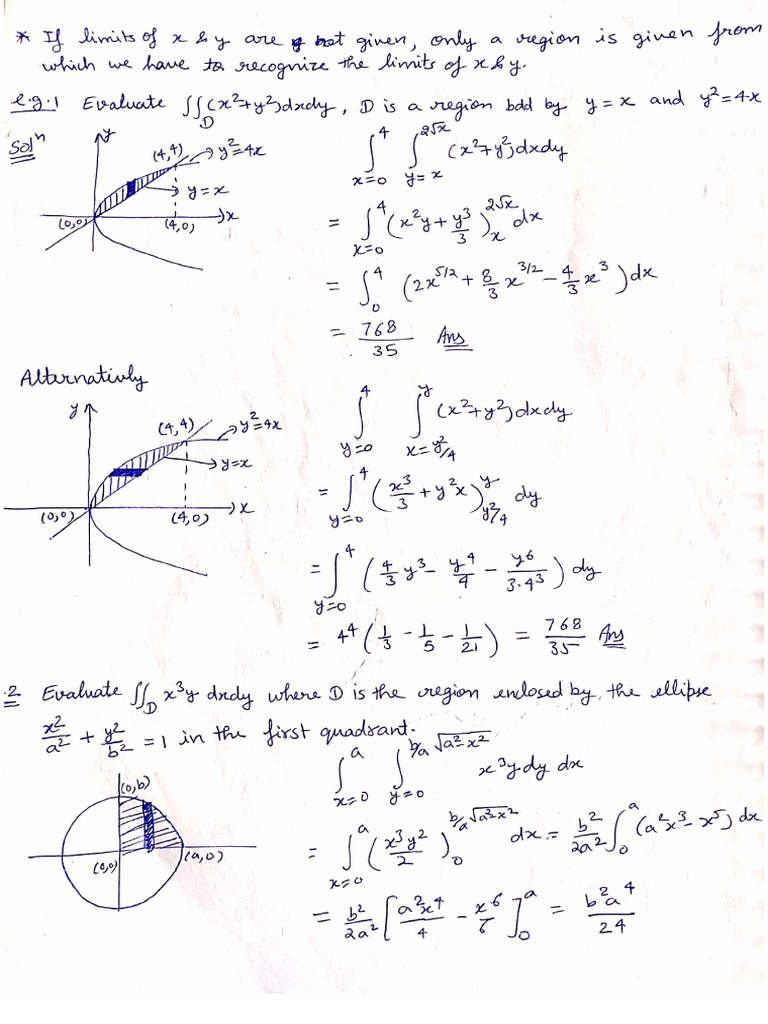 * If limits of x & y are not given, only a region is given from
which we have to recognize the limits of x & y.
e.g.1 Evaluate ∬_D (x²+y²)dxdy, D is a region bdd by y = x and y²=4x
Solⁿ
y
(4,4) → y²=4x
→ y = x
(0,0) (4,0) → x
∫_{x=0}^{4} ∫_{y=x}^{2√x} (x²+y²)dxdy
= ∫_{x=0}^{4} (x²y + y³/3)_{x}^{2√x} dx
= ∫_0^4 (2x^{5/2} + 8/3 x^{3/2} – 4/3 x³)dx
= 768/35 Ans
Alternativly
y
(4,4) → y²=4x
→ y=x
(0,0) (4,0) → x
∫_{y=0}^{4} ∫_{x=y²/4}^{y} (x²+y²)dxdy
= ∫_{y=0}^{4} (x³/3 + y²x)_{y²/4}^{y} dy
= ∫_{y=0}^{4} (4/3 y³ – y⁴/4 – y⁶/3·4³) dy
= 4⁴ (1/3 – 1/5 – 1/21) = 768/35 Ans
.2 Evaluate ∬_D x³y dxdy where D is the region enclosed by, the ellipse
x²/a² + y²/b² = 1 in the first quadrant.
(0,b)
(0,0) (a,0)
∫_{x=0}^{a} ∫_{y=0}^{b/a √(a²-x²)} x³y dy dx
= ∫_{x=0}^{a} (x³y²/2)_{0}^{b/a √(a²-x²)} dx = b²/2a² ∫_0^a (a²x³ – x⁵) dx
= b²/2a² [a²x⁴/4 – x⁶/6]_0^a = b²a⁴/24